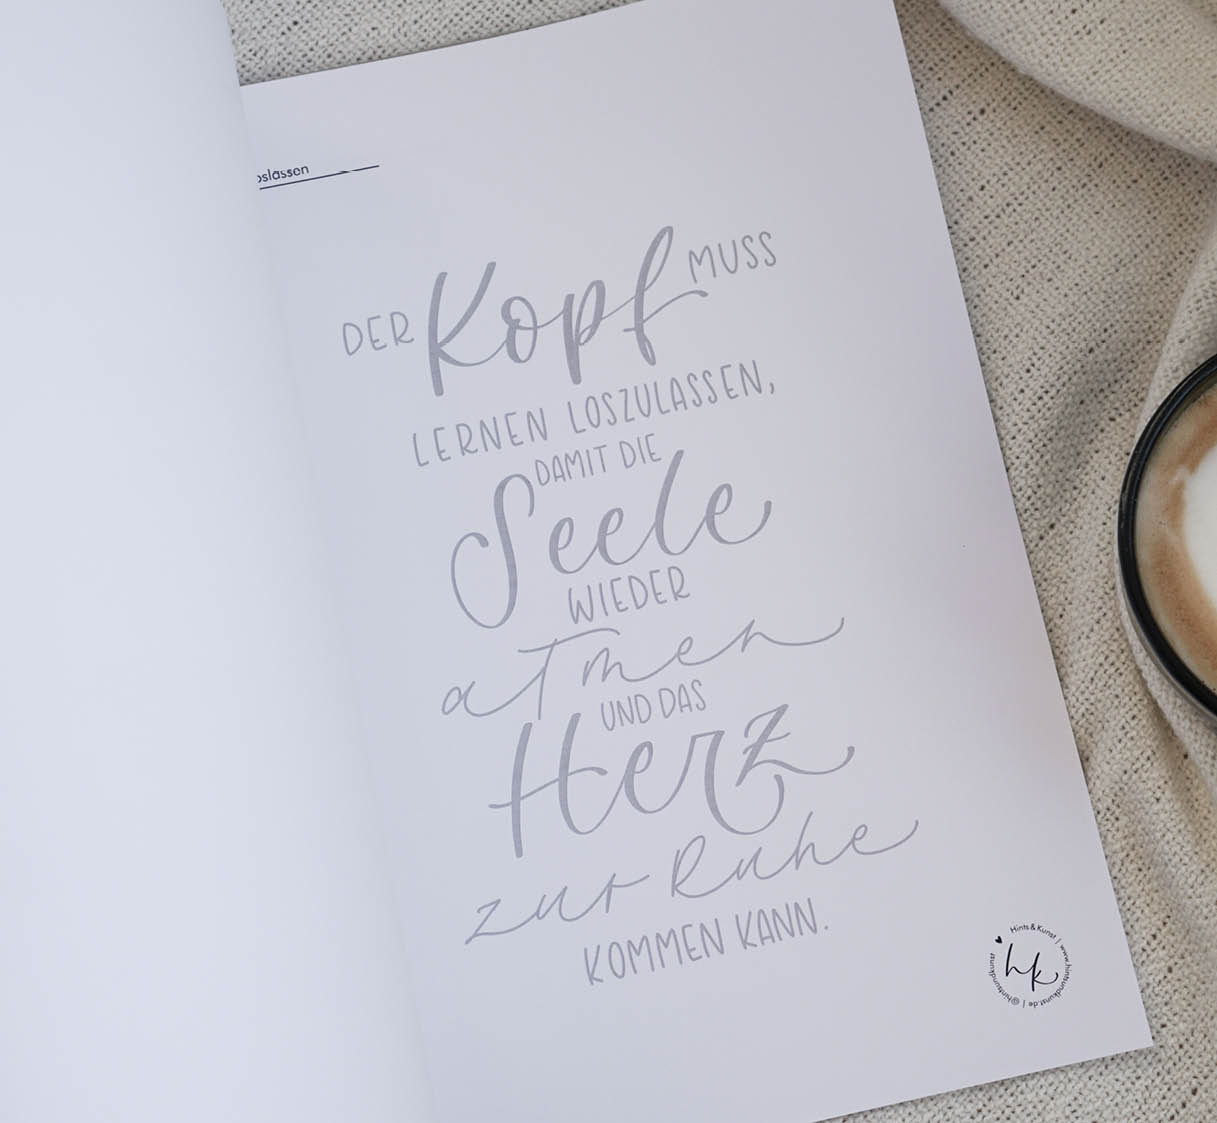 oslassen
DER Kopf MUSS
LERNEN LOSZULASSEN,
DAMIT DIE
Seele
WIEDER
atmen
UND DAS
Herz
zur Ruhe
KOMMEN KANN.
Hints & Kunst | www.hintsundkunst.de | @hintsundkunst
hk